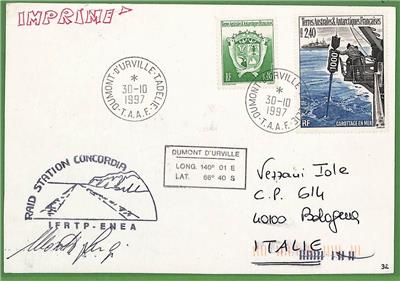 IMPRIME
Terres Australes & Antarctiques Françaises
RF
Terres Australes & Antarctiques Françaises
2,40
1000
RF
CAROTTAGE EN MER
DUMONT-D'URVILLE-T.ADELIE
*
30-10
1997
T.A.A.F.
DUMONT-D'URVILLE-T.ADELIE
*
30-10
1997
T.A.A.F.
DUMONT D'URVILLE
LONG. 140° 01 E
LAT. 66° 40 S
RAID STATION CONCORDIA
IFRTP-ENEA
Vezzani Iole
C.P. 614
40100 Bologna
ITALIE
32